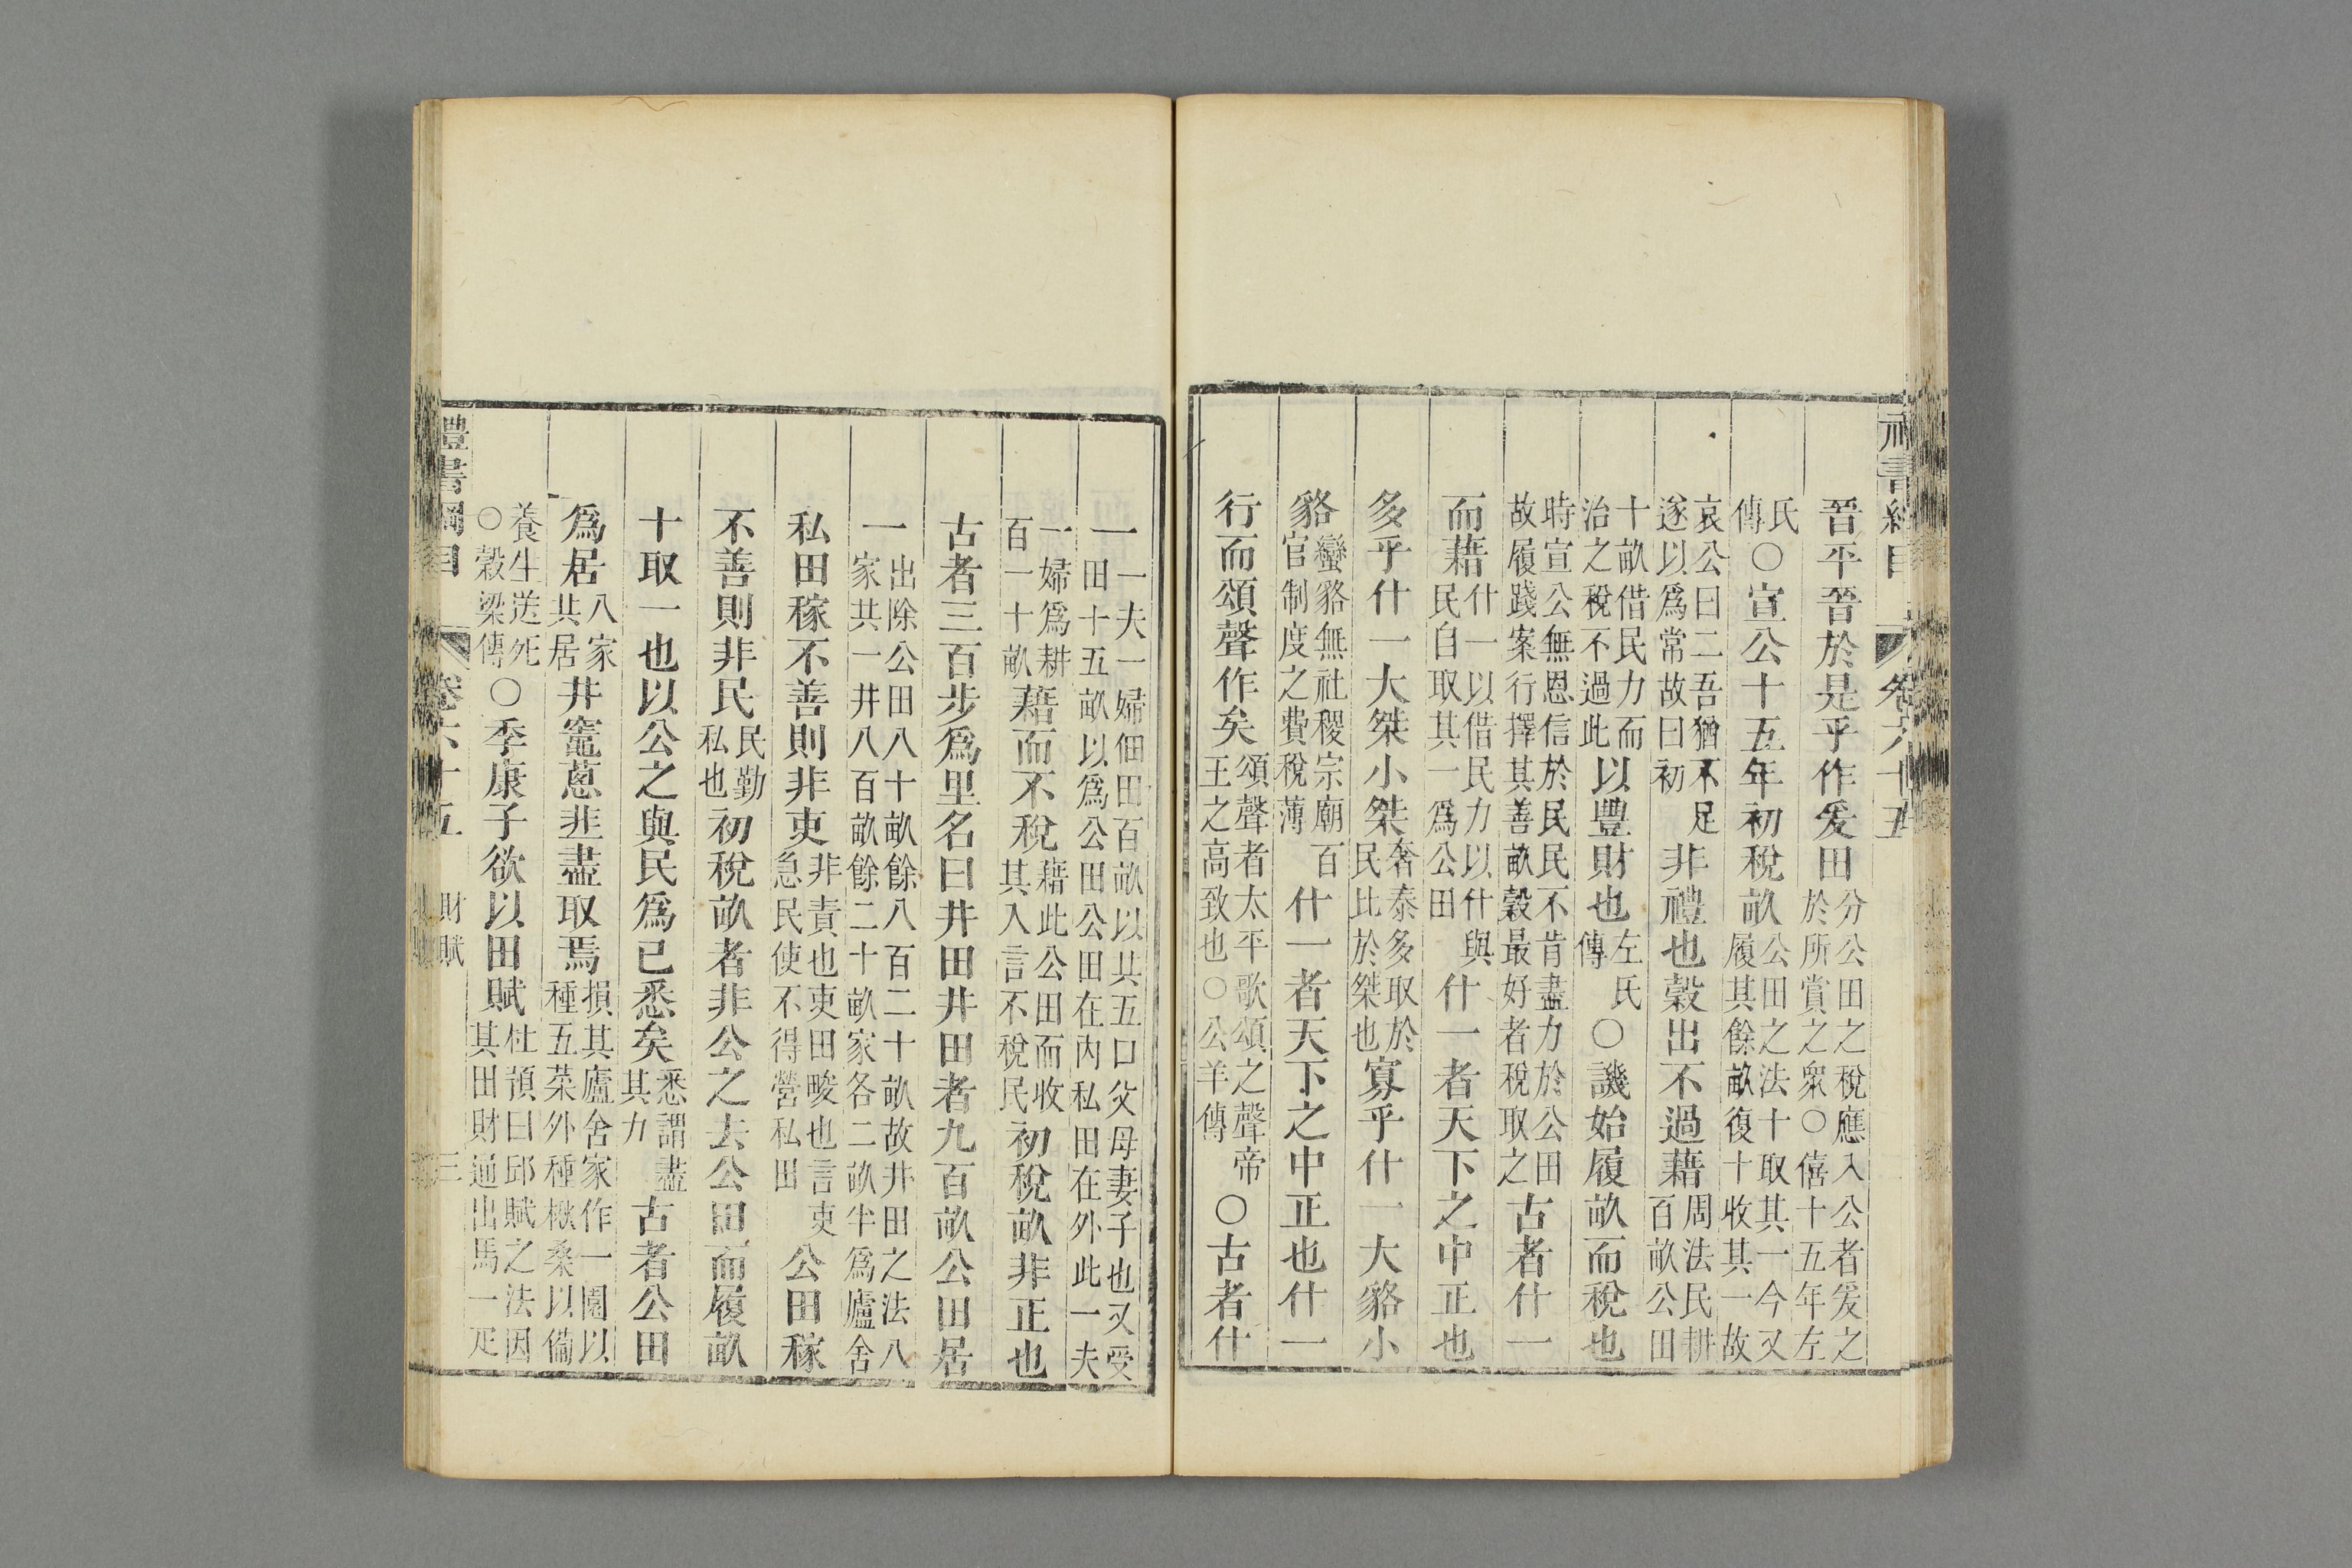 禮書綱目 卷六十五
晉平晉於是乎作爰田分公田之稅應入公者爰之於所賞之衆○僖十五年左
氏傳○宣公十五年初稅畝公田之法十取其一今又履其餘畝復十收其一故
哀公曰二吾猶不足遂以爲常故曰初非禮也穀出不過藉周法民耕百畝公田
十畝借民力而治之稅不過此以豐財也左氏傳○譏始履畝而稅也
時宣公無恩信於民民不肯盡力於公田故履踐案行擇其善畝穀最好者稅取之古者什一
而藉什一以借民力以什與民自取其一爲公田什一者天下之中正也
多乎什一大桀小桀奢泰多取於民比於桀也寡乎什一大貉小
貉蠻貉無社稷宗廟百官制度之費稅薄什一者天下之中正也什一
行而頌聲作矣頌聲者太平歌頌之聲帝王之高致也○公羊傳○古者什
一一夫一婦佃田百畝以共五口父母妻子也又受田十五畝以爲公田公田在内私田在外此一夫
一婦爲耕百一十畝藉而不稅藉此公田而收其入言不稅民初稅畝非正也
古者三百步爲里名曰井田井田者九百畝公田居
一出除公田八十畝餘八百二十畝故井田之法八家共一井八百畝餘二十畝家各二畝半爲廬舍
私田稼不善則非吏非責也吏田畯也言吏急民使不得營私田公田稼
不善則非民民勤私也初稅畝者非公之去公田而履畝
十取一也以公之與民爲已悉矣悉謂盡其力古者公田
爲居八家共居井竈蔥韭盡取焉損其廬舍家作一園以種五菜外種楸桑以備
養生送死○穀梁傳○季康子欲以田賦杜預曰邱賦之法因其田財通出馬一疋
禮書綱目 卷六十五 財賦 三